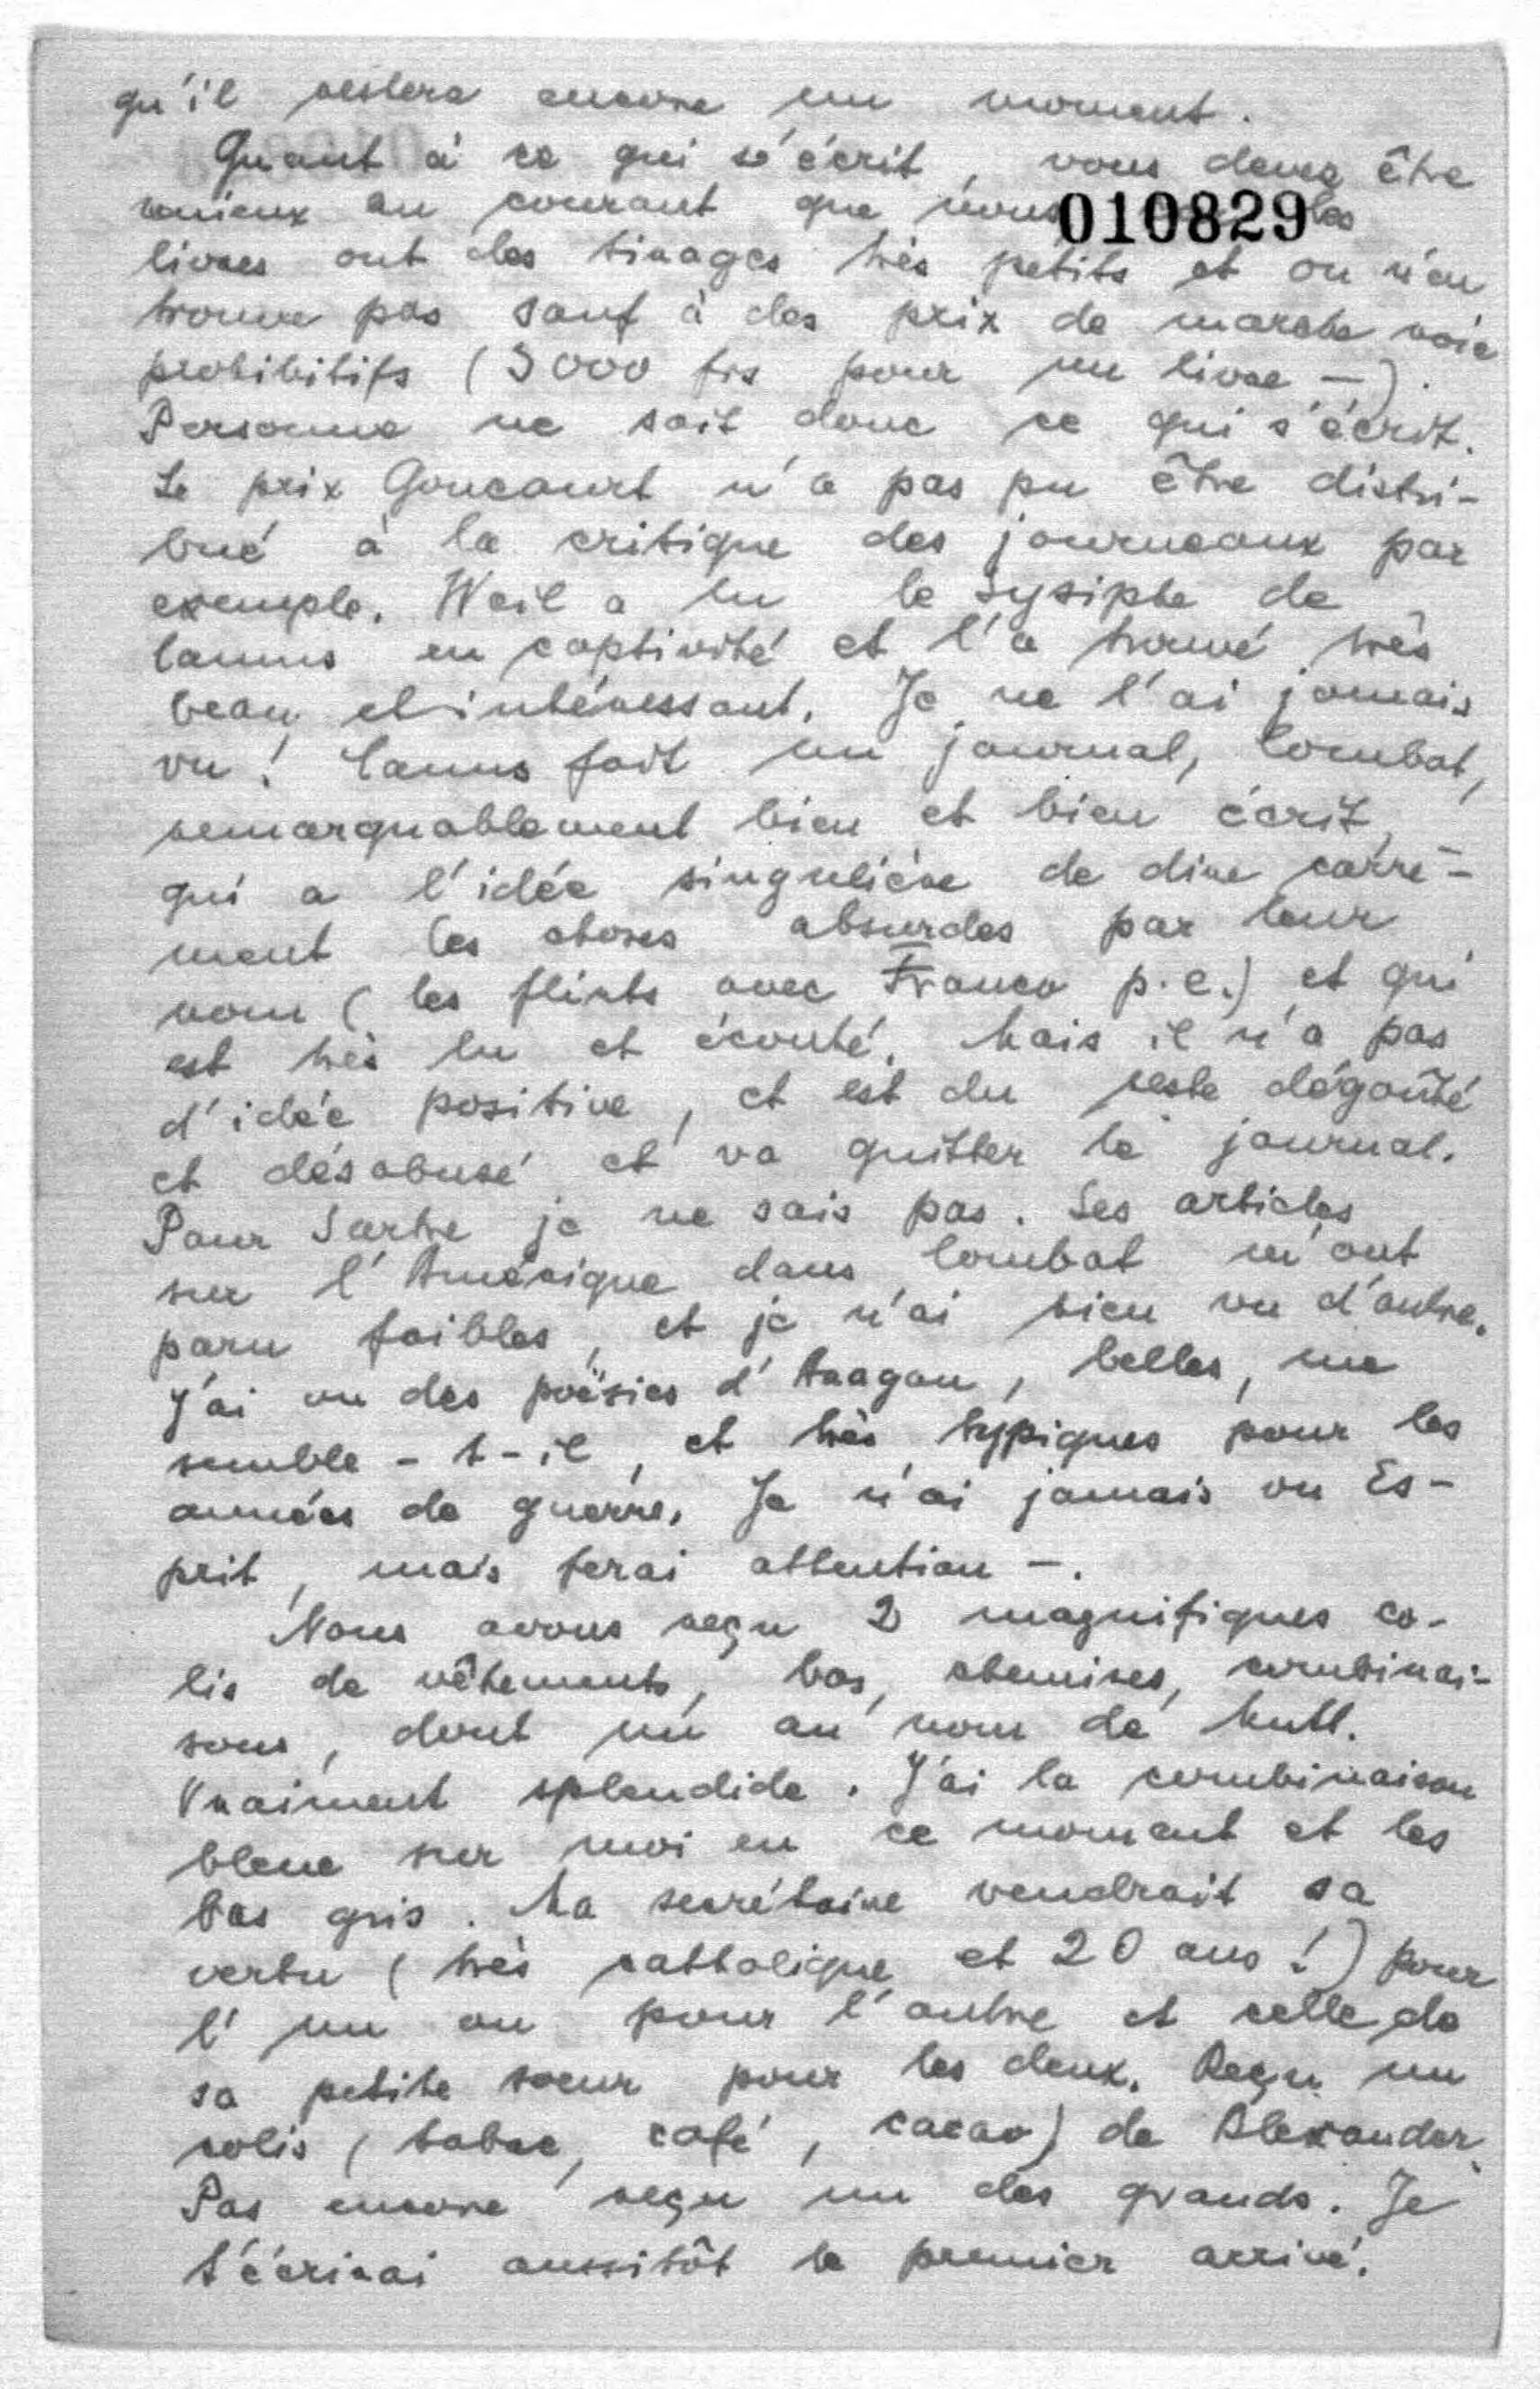 qu'il restera encore un moment.
Quant à ce qui s'écrit, vous devez être
mieux au courant que nous
010829
les
livres ont des tirages très petits et on n'en
trouve pas sauf à des prix de marché noir
prohibitifs (3000 frs pour un livre —).
Personne ne sait donc ce qui s'écrit.
Le prix Goncourt n'a pas pu être distri-
bué à la critique des journeaux par
exemple. Weil a lu le Sysiphe de
Camus en captivité et l'a trouvé très
beau et intéressant. Je ne l'ai jamais
vu! Camus fait un journal, Combat,
remarquablement bien et bien écrit,
qui a l'idée singulière de dire carré-
ment les choses absurdes par leur
nom (les flirts avec Franco p.e.) et qui
est très lu et écouté. Mais il n'a pas
d'idée positive, et est du reste dégoûté
et désabusé et va quitter le journal.
Pour Sartre je ne sais pas. Ses articles
sur l'Amérique dans Combat m'ont
paru faibles, et je n'ai rien vu d'autre.
J'ai vu des poësies d'Aragon, belles, me
semble-t-il, et très typiques pour les
années de guerre. Je n'ai jamais vu Es-
prit, mais ferai attention —.
Nous avons reçu 2 magnifiques co-
lis de vêtements, bas, chemises, combinai-
sons, dont un au nom de Mutt.
Vraiment splendide. J'ai la combinaison
bleue sur moi en ce moment et les
bas gris. Ma secrétaire vendrait sa
vertu (très catholique et 20 ans!) pour
l'un ou pour l'autre et celle de
sa petite soeur pour les deux. Reçu un
colis (tabac, café, cacao) de Alexander.
Pas encore reçu un des grands. Je
t'écrirai aussitôt le premier arrivé.